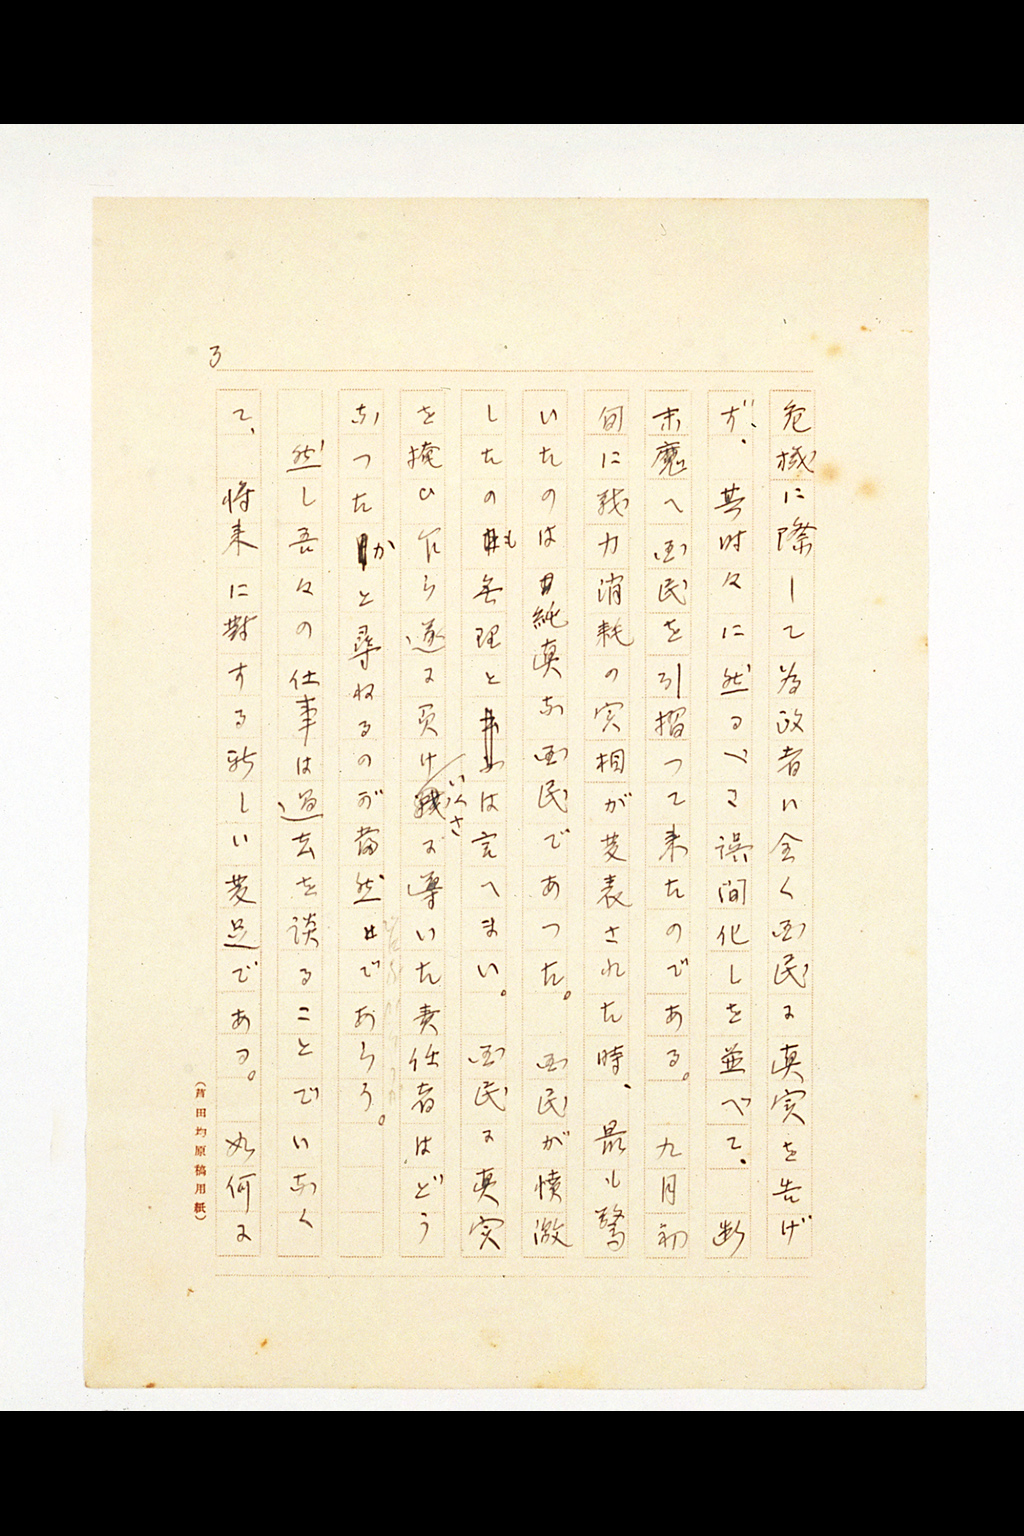 3
危機に際して為政者は全く国民に真実を告げ
ず、其時々に然るべき誤間化しを並べて、断
末魔へ国民を引摺つて来たのである。九月初
旬に戦力消耗の実相が発表された時、最も驚
いたのは純真な国民であつた。国民が憤激
したのも無理とは言へまい。国民に真実
を掩ひ乍ら遂に負けいくさに導いた責任者はどう
なつたかと尋ねるのが当然であらう。
然し吾々の仕事は過去を談ることでいなく
て、将来に対する新しい発足である。如何に
(芦田均原稿用紙)